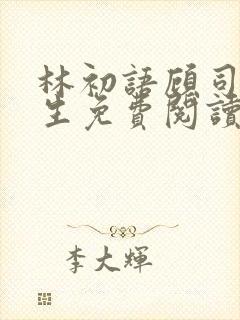 林初語顧司
生免費閱讀
李大輝